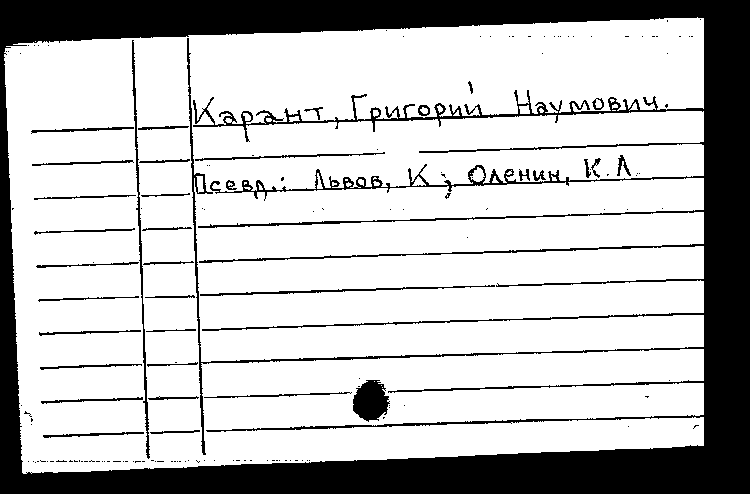 Карант, Григорий Наумович.
Псевд.: Львов, К ; Оленин, К. Л